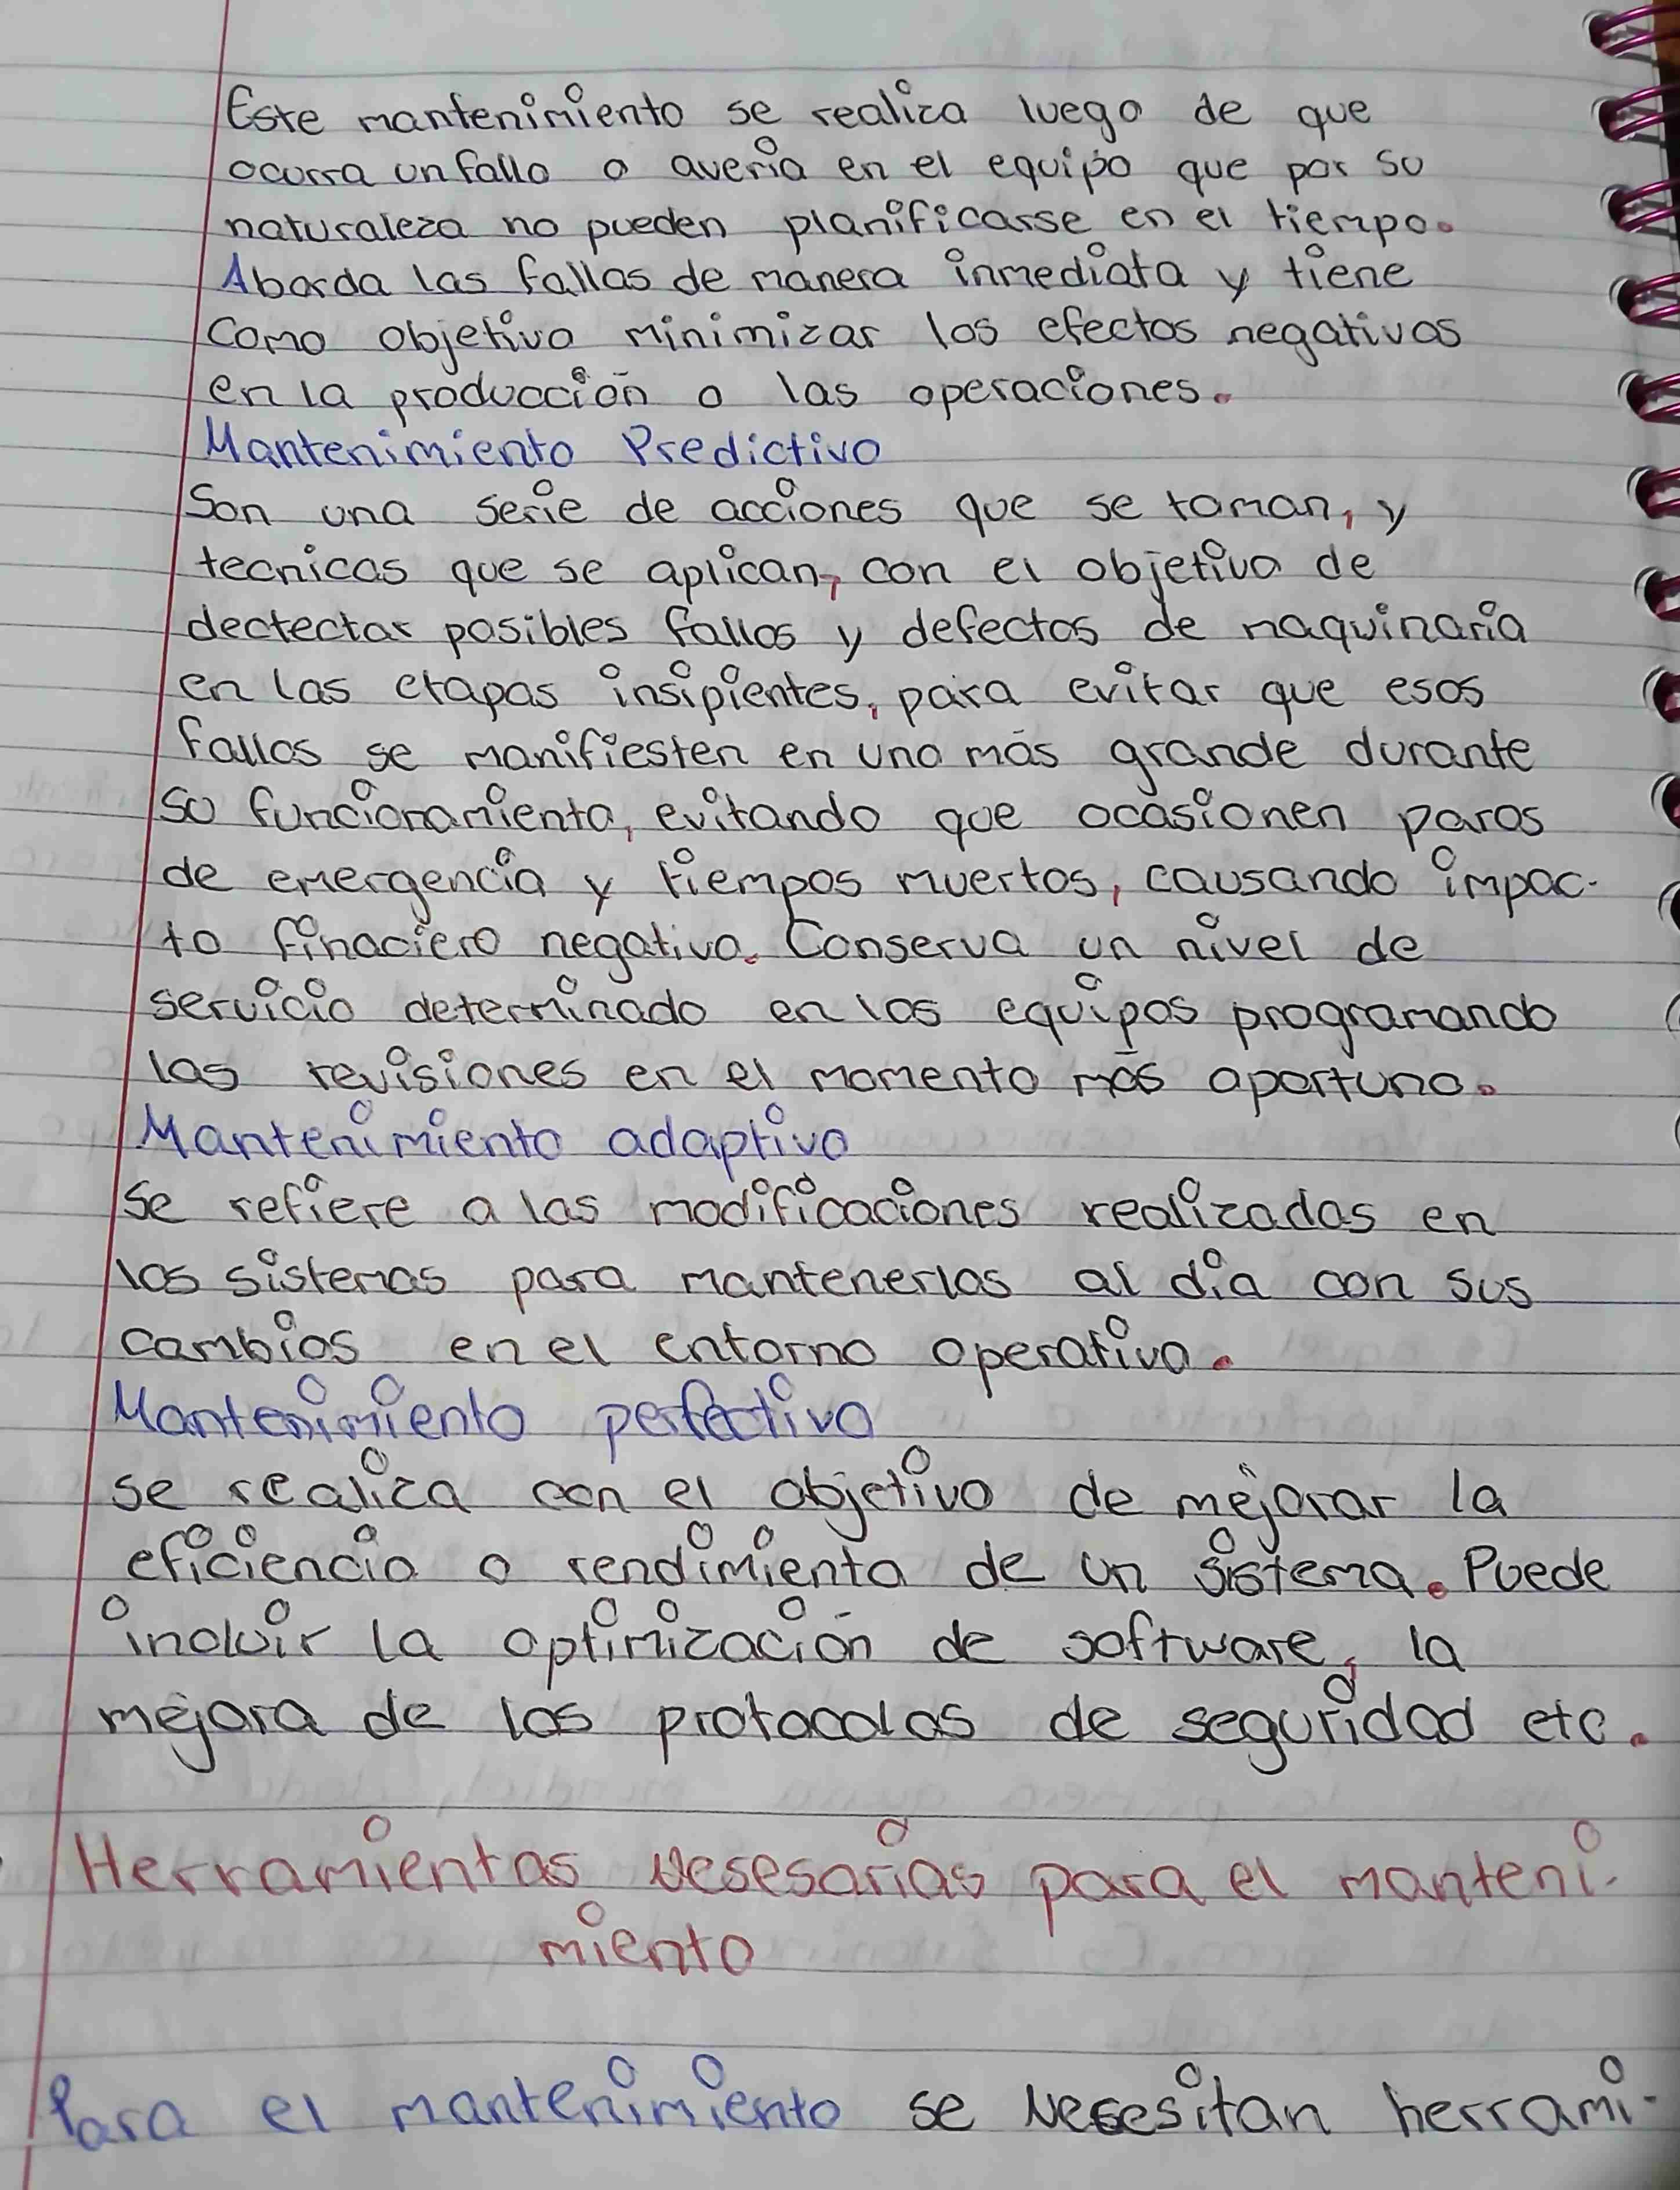 Este mantenimiento se realiza luego de que
ocurra un fallo o avería en el equipo que por su
naturaleza no pueden planificarse en el tiempo.
Aborda las fallas de manera inmediata y tiene
como objetivo minimizar los efectos negativos
en la producción o las operaciones.
Mantenimiento Predictivo
Son una serie de acciones que se toman, y
tecnicas que se aplican, con el objetivo de
dectectar posibles fallos y defectos de maquinaria
en las etapas insipientes, para evitar que esos
fallos se manifiesten en uno más grande durante
su funcionamiento, evitando que ocasionen paros
de emergencia y tiempos muertos, causando impac-
to finaciero negativo. Conserva un nivel de
servicio determinado en los equipos programando
las revisiones en el momento más oportuno.
Mantenimiento adaptivo
Se refiere a las modificaciones realizadas en
los sistemas para mantenerlos al día con sus
cambios en el entorno operativo.
Mantenimiento perfectivo
se realiza con el objetivo de mejorar la
eficiencia o rendimiento de un sistema. Puede
incluir la optimización de software, la
mejora de los protocolos de seguridad etc.
Herramientas Nesesarias para el manteni-
miento
Para el mantenimiento se Necesitan herrami-